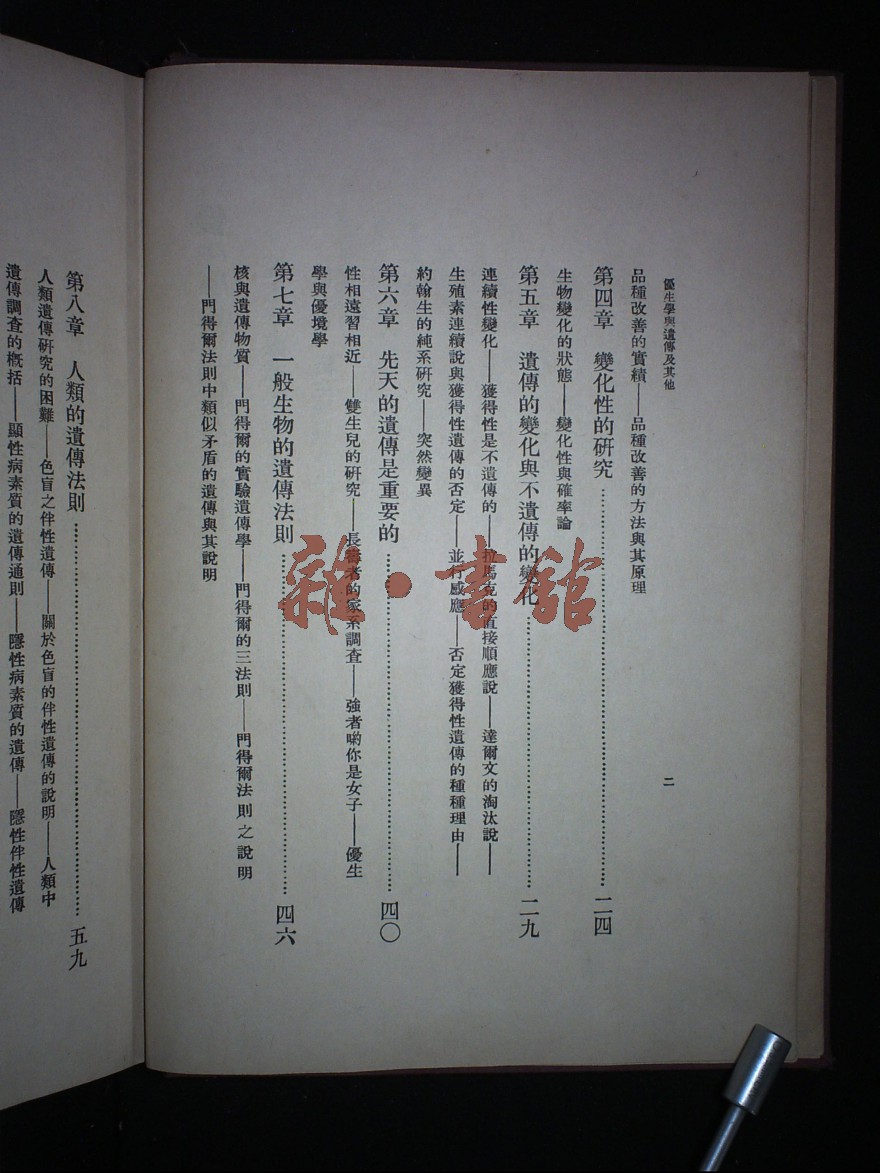 優生學與遺傳及其他
二
品種改善的實績——品種改善的方法與其原理
第四章　變化性的研究……………………二四
生物變化的狀態——變化性與確率論
第五章　遺傳的變化與不遺傳的變化……………………二九
連續性變化——獲得性是不遺傳的——拉馬克的直接順應說——達爾文的淘汰說——
生殖素連續說與獲得性遺傳的否定——並行感應——否定獲得性遺傳的種種理由——
約翰生的純系研究——突然變異
第六章　先天的遺傳是重要的……………………四〇
性相遠習相近——雙生兒的研究——長壽者的家系調查——強者喲你是女子——優生
學與優境學
第七章　一般生物的遺傳法則……………………四六
核與遺傳物質——門得爾的實驗遺傳學——門得爾的三法則——門得爾法則之說明
——門得爾法則中類似矛盾的遺傳與其說明
第八章　人類的遺傳法則……………………五九
人類遺傳研究的困難——色盲之伴性遺傳——關於色盲的伴性遺傳的說明——人類中
遺傳調查的概括——顯性病素質的遺傳通則——隱性病素質的遺傳——隱性伴性遺傳
雜·書館